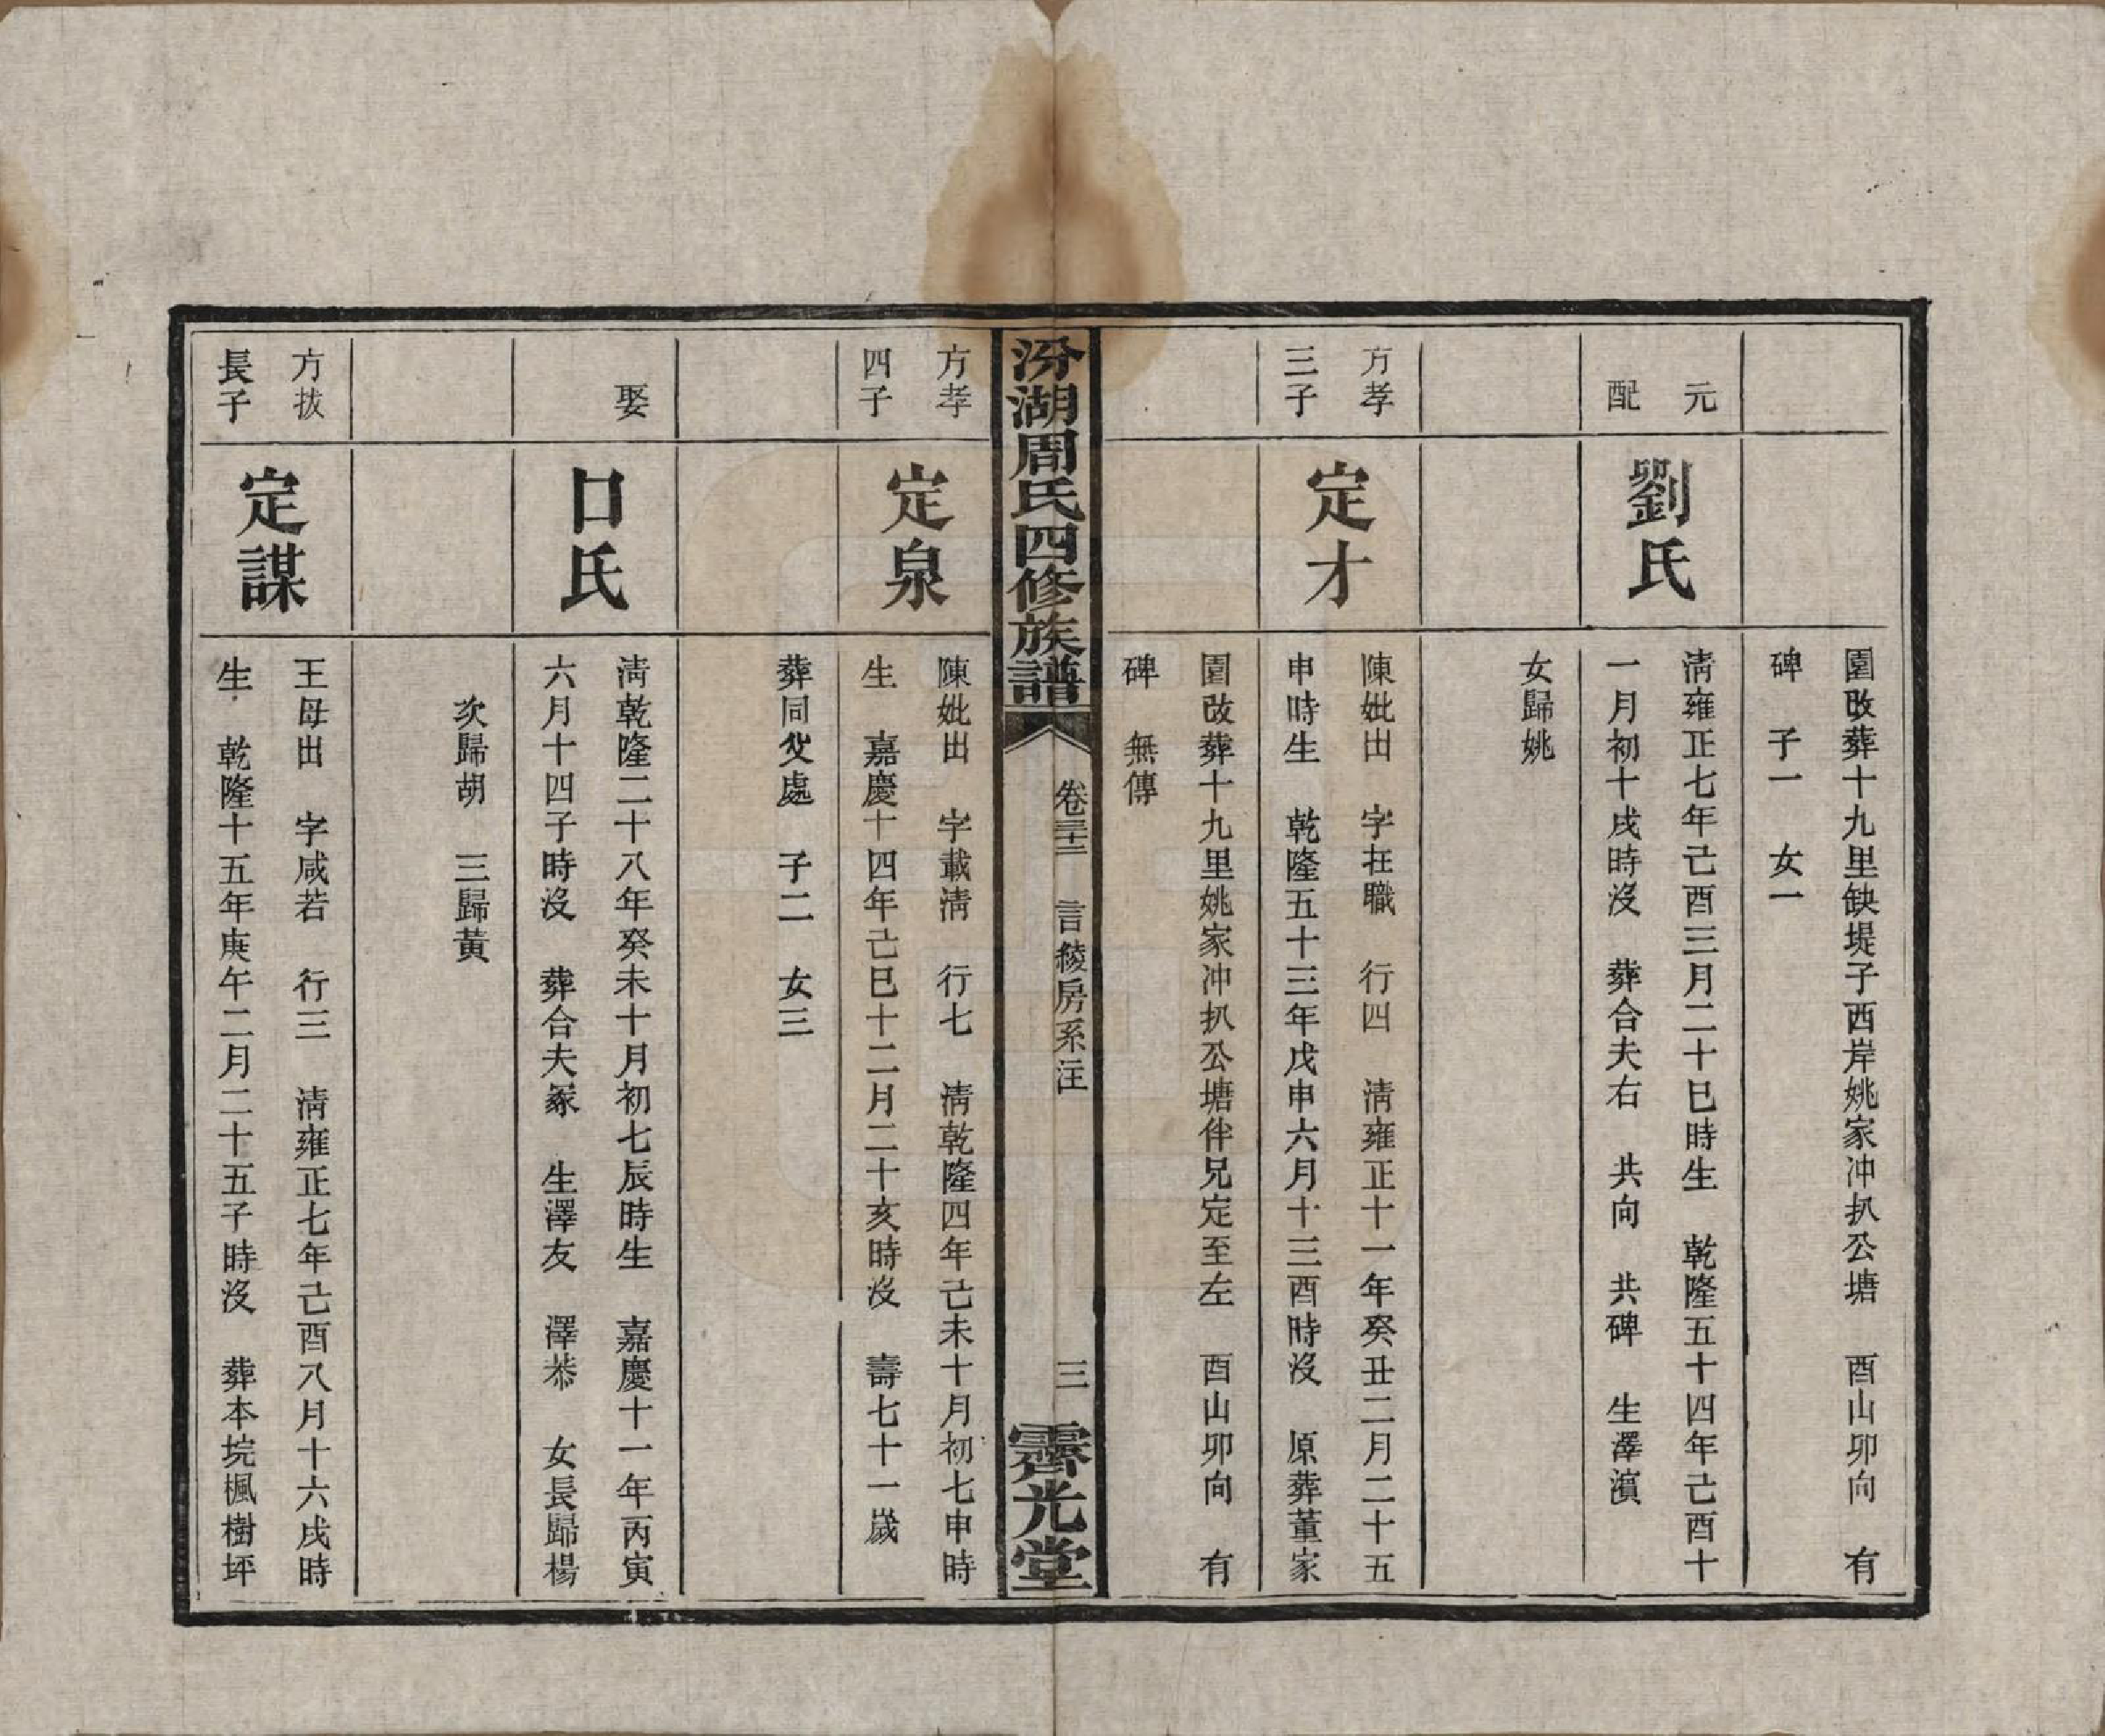 園改葬十九里缺堤子西岸姚家冲扒公塘　酉山卯向　有
碑　子一　女一
元
配
劉氏
淸雍正七年己酉三月二十巳時生　乾隆五十四年己酉十
一月初十戌時沒　葬合夫右　共向　共碑　生澤濱
女歸姚
方孝
三子
定才
陳妣出　字在職　行四　淸雍正十一年癸丑二月二十五
申時生　乾隆五十三年戊申六月十三酉時沒　原葬董家
園改葬十九里姚家冲扒公塘伴兄定至左　酉山卯向　有
碑　無傳
汾湖周氏四修族譜
卷三十三　言綾房系注
三
霽光堂
方孝
四子
定泉
陳妣出　字載淸　行七　淸乾隆四年己未十月初七申時
生　嘉慶十四年己巳十二月二十亥時沒　壽七十一歲
葬同父處　子二　女三
娶
口氏
淸乾隆二十八年癸未十月初七辰時生　嘉慶十一年丙寅
六月十四子時沒　葬合夫冢　生澤友　澤恭　女長歸楊
次歸胡　三歸黃
方拔
長子
定謀
王母出　字咸若　行三　淸雍正七年己酉八月十六戌時
生　乾隆十五年庚午二月二十五子時沒　葬本垸楓樹坪